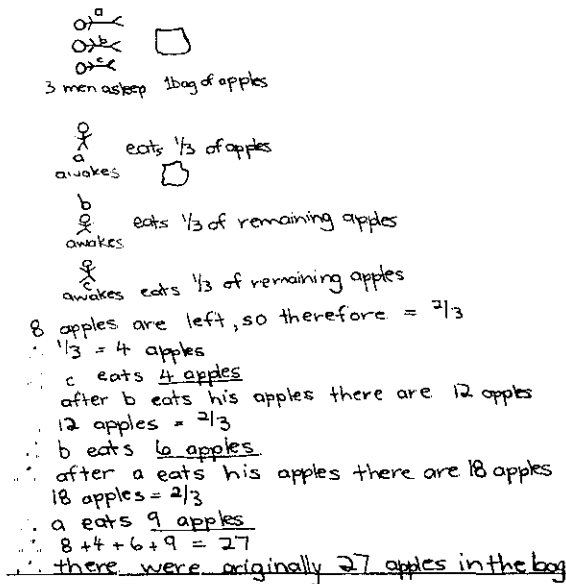 a
b
c
3 men asleep 1 bag of apples
a awakes eats 1/3 of apples
b awakes eats 1/3 of remaining apples
c awakes eats 1/3 of remaining apples
8 apples are left, so therefore = 2/3
∴ 1/3 = 4 apples
∴ c eats 4 apples
after b eats his apples there are 12 apples
12 apples = 2/3
∴ b eats 6 apples
∴ after a eats his apples there are 18 apples
18 apples = 2/3
∴ a eats 9 apples
∴ 8 + 4 + 6 + 9 = 27
∴ there were originally 27 apples in the bag